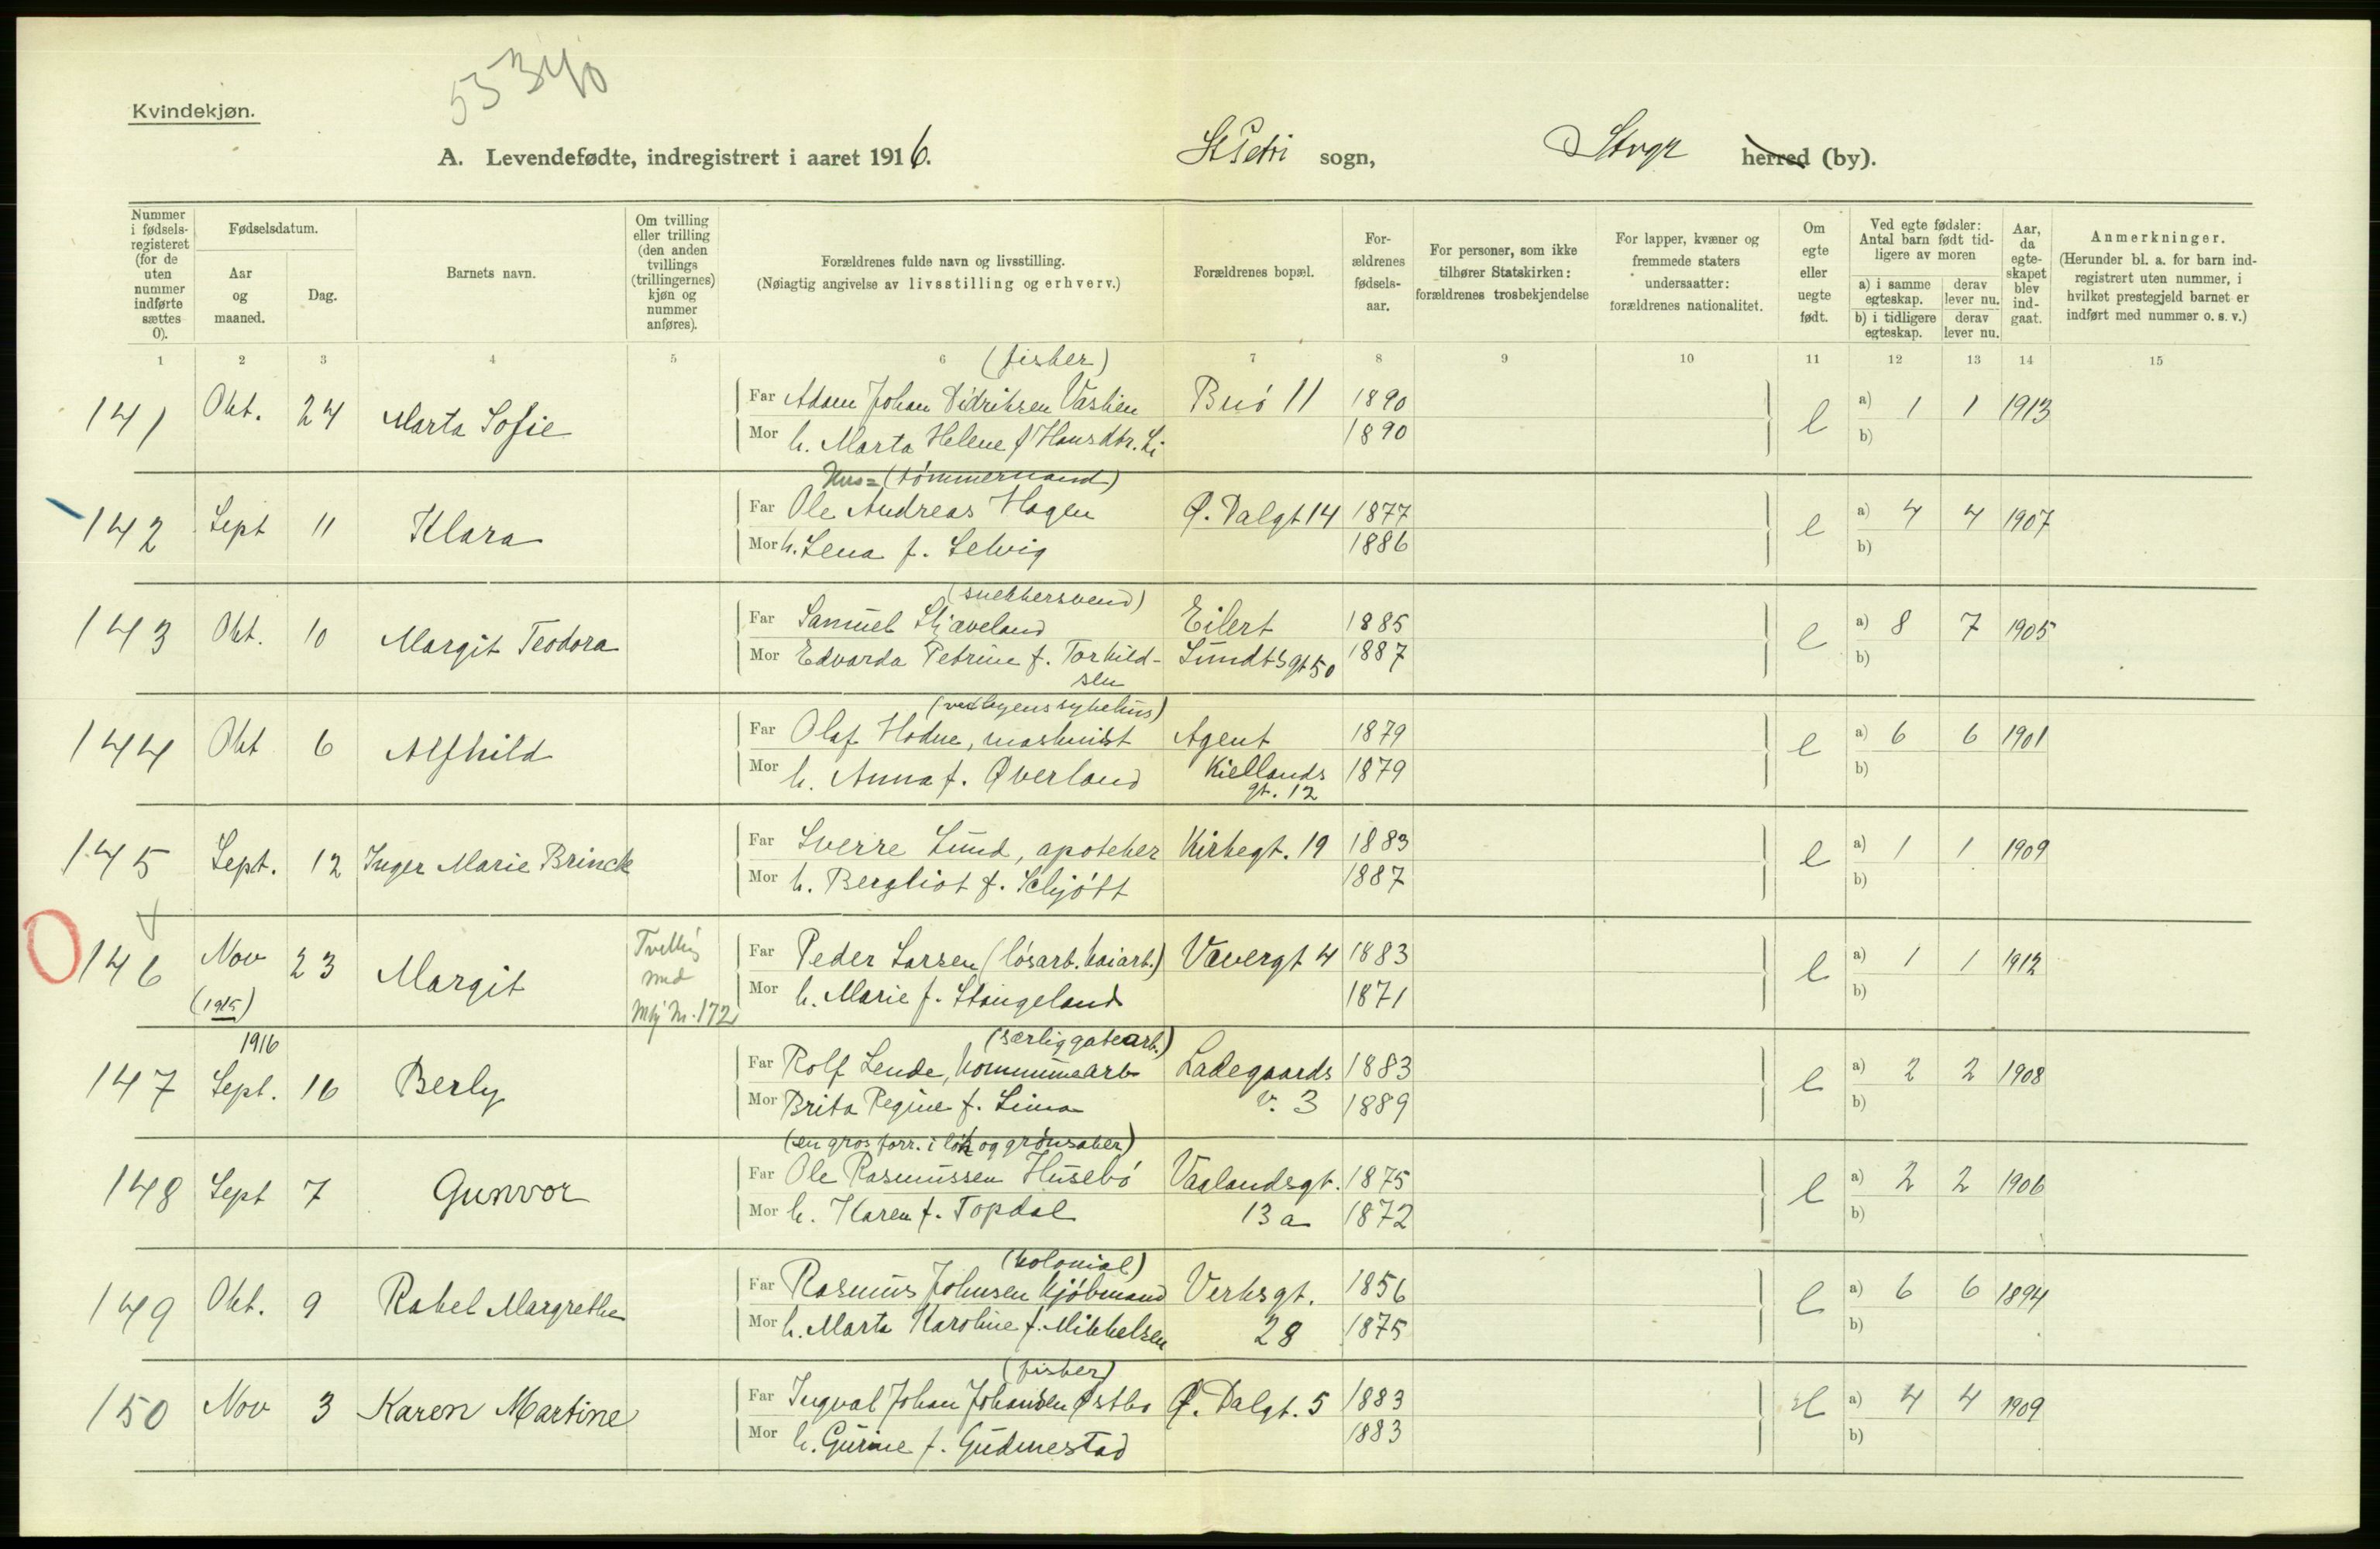 53340
Kvindekjøn.
A. Levendefødte, indregistrert i aaret 1916.
St Petri sogn,
Stvgr herred (by).
Nummer i fødselsregisteret (for de uten nummer indførte sættes 0).
Fødselsdatum.
Aar og maaned.
Dag.
Barnets navn.
Om tvilling eller trilling (den anden tvillings (trillingernes) kjøn og nummer anføres).
Forældrenes fulde navn og livsstilling.
(Nøiagtig angivelse av livsstilling og erhverv.)
Forældrenes bopæl.
Forældrenes fødselsaar.
For personer, som ikke tilhører Statskirken: forældrenes trosbekjendelse
For lapper, kvæner og fremmede staters undersaatter: forældrenes nationalitet.
Om egte eller uegte født.
Ved egte fødsler: Antal barn født tidligere av moren
a) i samme egteskap.
derav lever nu.
b) i tidligere egteskap.
derav lever nu.
Aar, da egteskapet blev indgaat.
Anmerkninger.
(Herunder bl. a. for barn indregistrert uten nummer, i hvilket prestegjeld barnet er indført med nummer o. s. v.)
1 2 3 4 5 6 7 8 9 10 11 12 13 14 15
(fisker)
141 Okt. 24 Marta Sofie Far Adam Johan Didriksen Vasken Buö 11 1890 e a) 1 1 1913
Mor h. Marta Helene f Hansdtr. Li 1890 b)
Hus= (tömmermand)
142 Sept 11 Klara Far Ole Andreas Hagen Ø. Dalgt 14 1877 e a) 4 4 1907
Mor h. Lena f. Selvig 1886 b)
(snekkersvend)
143 Okt. 10 Margit Teodora Far Samuel Skjæveland Eilert 1885 e a) 8 7 1905
Mor Edvarda Petrine f. Torkild- Sundts gt 50 1887 b)
sen
(ved byens sykehus)
144 Okt 6 Alfhild Far Olaf Hodne, maskinist Agent 1879 e a) 6 6 1901
Mor h. Anna f. Øverland Kiellands 1879 b)
gt. 12
145 Sept. 12 Inger Marie Brinck Far Sverre Lund, apoteker Kirkegt. 19 1883 e a) 1 1 1909
Mor h. Bergliot f. Schjött 1887 b)
146 Nov 23 Margit Tvilling med Mkj Nr. 172 Far Peder Larsen (lösarb. kaiarb.) Vævergt 4 1883 e a) 1 1 1912
(1915) Mor h. Marie f. Stangeland 1871 b)
1916 (særlig gatearb.)
147 Sept. 16 Berly Far Rolf Lende, kommunearb Ladegaards 1883 e a) 2 2 1908
Mor Brita Regine f. Lima v. 3 1889 b)
(en gros forr. i lök og grönsaker)
148 Sept 7 Gunvor Far Ole Rasmussen Husebö Vaalandsgt. 1875 e a) 2 2 1906
Mor h. Karen f. Topdal 13 a 1872 b)
(kolonial)
149 Okt. 9 Rakel Margrethe Far Rasmus Johnsen kjöbmand Verksgt. 1856 e a) 6 6 1894
Mor h. Marta Karoline f. Mikkelsen 28 1875 b)
(fisker)
150 Nov 3 Karen Martine Far Ingval Johan Johansen Østbö Ø. Dalgt. 5 1883 e a) 4 4 1909
Mor h. Gurine f. Gudmestad 1883 b)